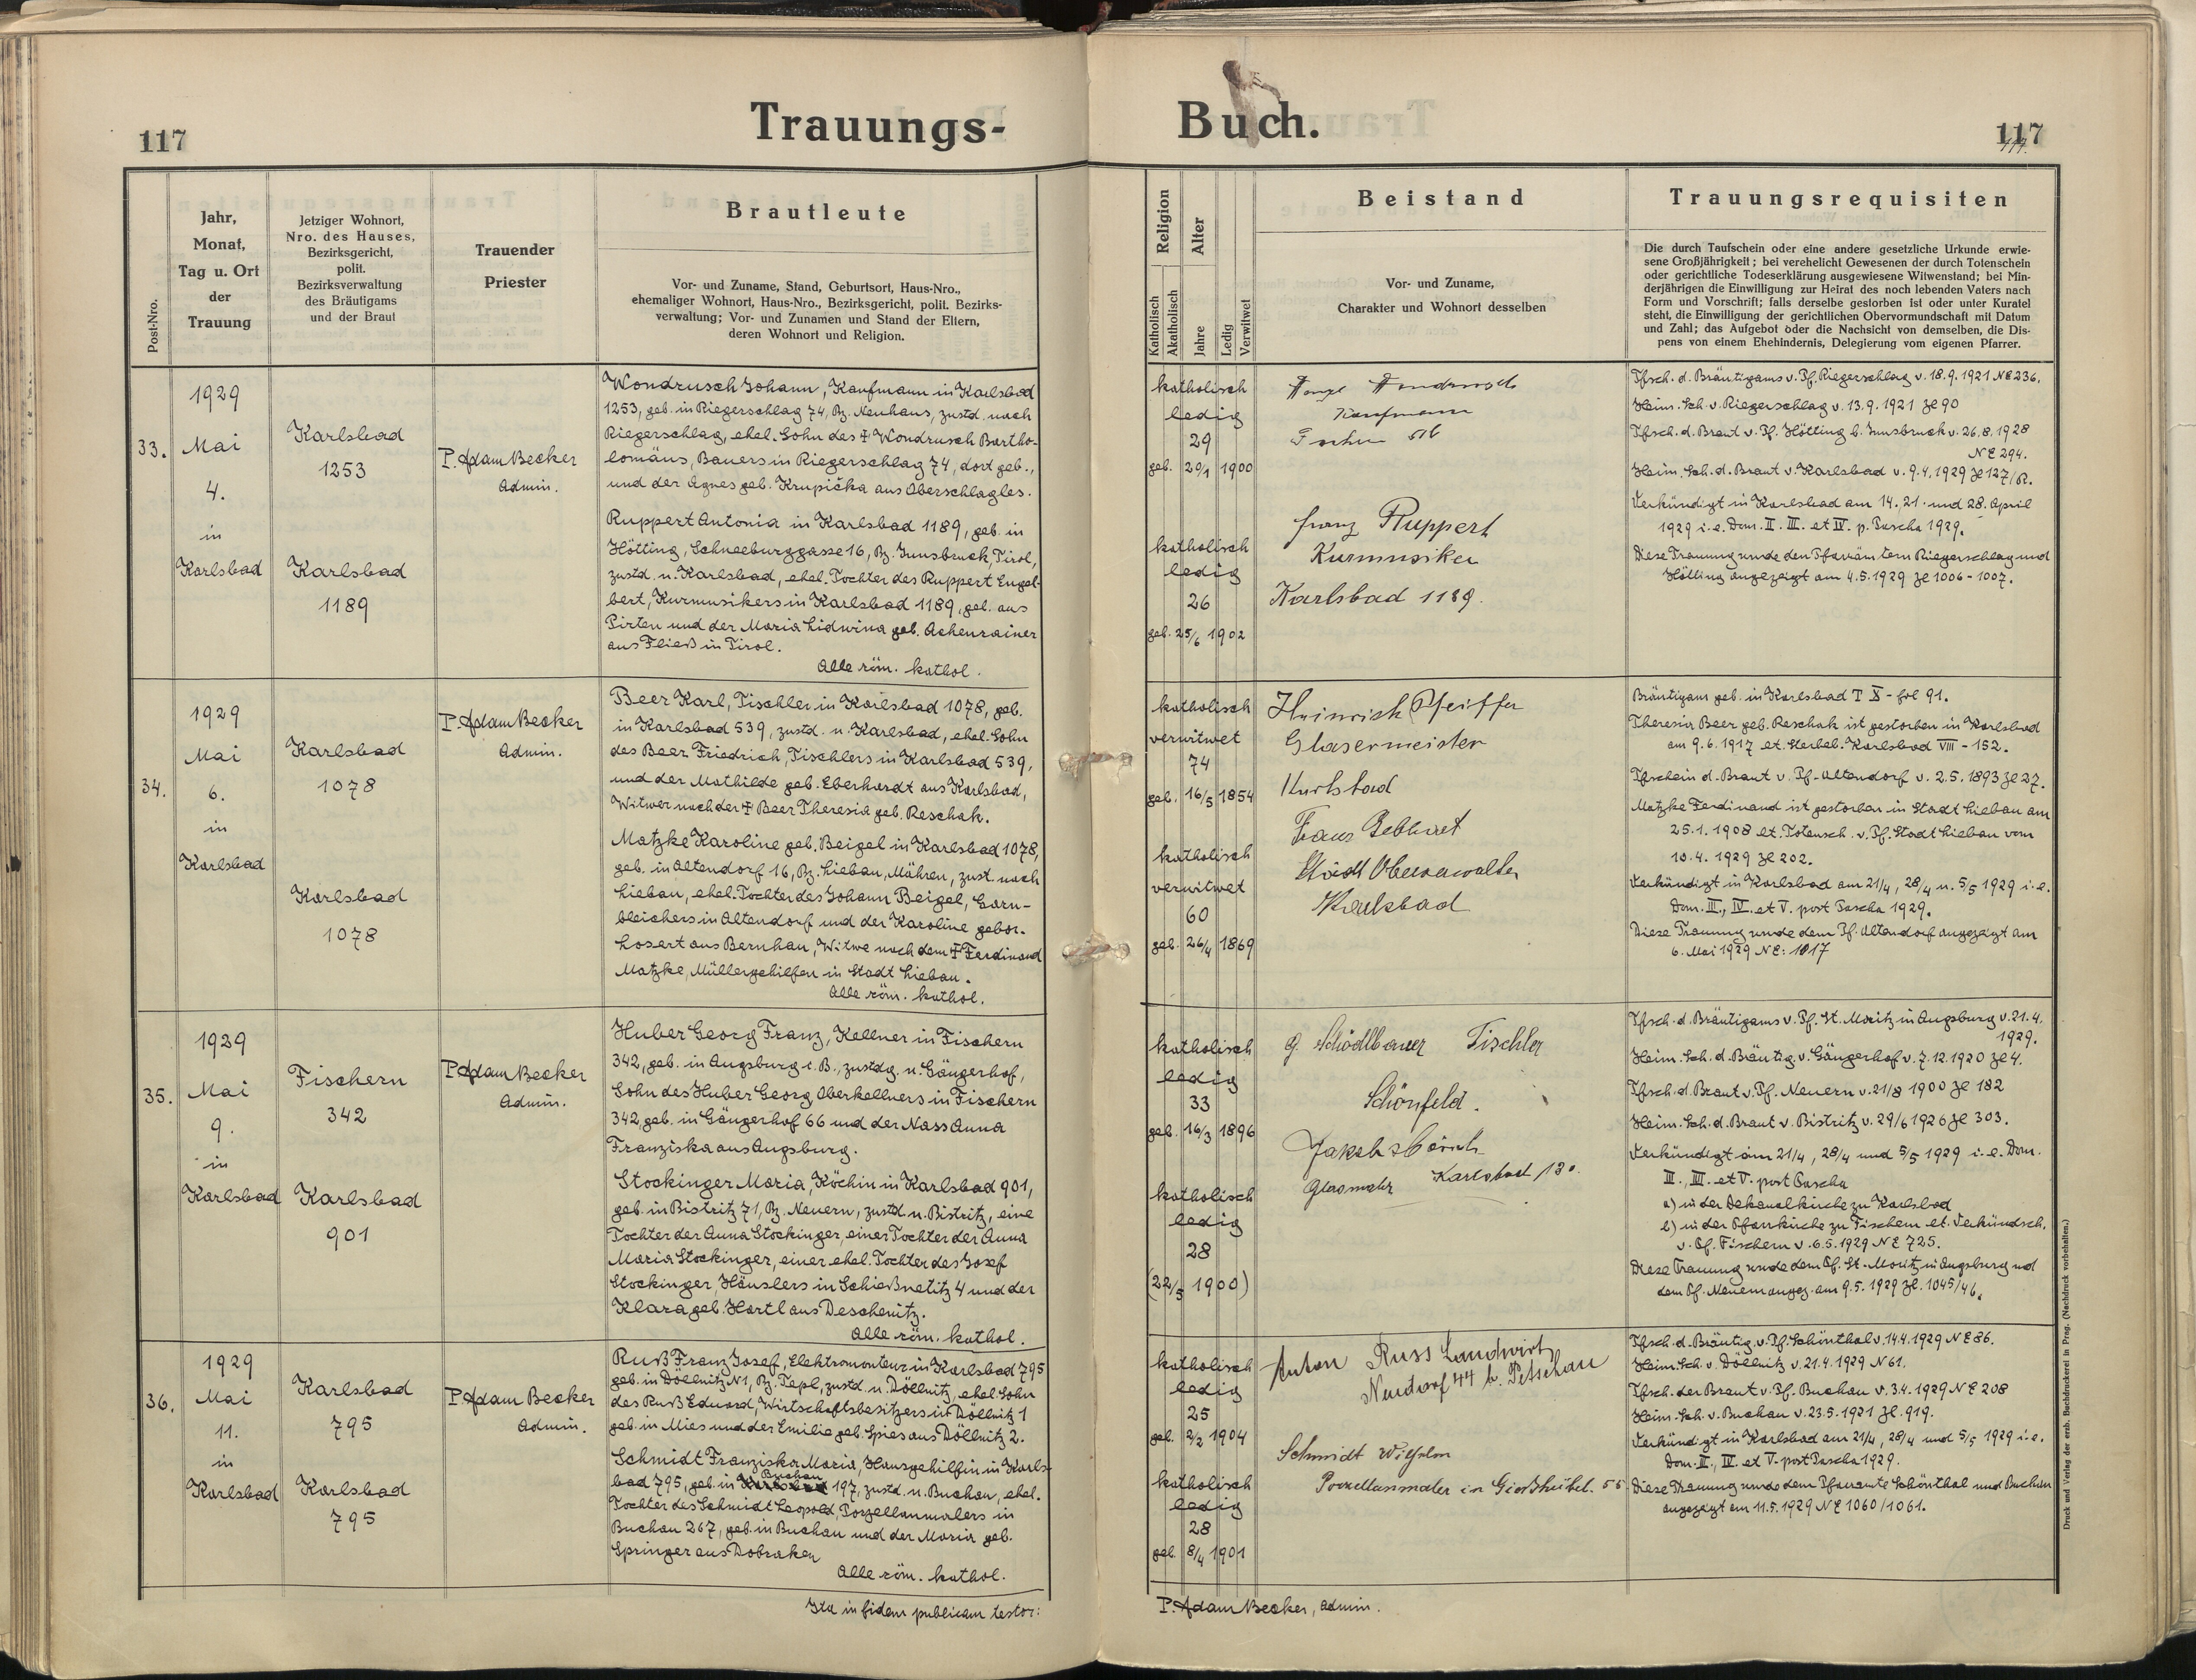 117
Trauungs-
Post-Nro.
Jahr,
Monat,
Tag u. Ort
der
Trauung
Jetziger Wohnort,
Nro. des Hauses,
Bezirksgericht,
polit.
Bezirksverwaltung
des Bräutigams
und der Braut
Trauender
Priester
Brautleute
Vor- und Zuname, Stand, Geburtsort, Haus-Nro.,
ehemaliger Wohnort, Haus-Nro., Bezirksgericht, polit. Bezirks-
verwaltung; Vor- und Zunamen und Stand der Eltern,
deren Wohnort und Religion.
33.
1929
Mai
4.
in
Karlsbad
Karlsbad
1253
Karlsbad
1189
P. Adam Becker
Admin.
Wondrusch Johann, Kaufmann in Karlsbad
1253, geb. in Riegerschlag 74, Bz. Neuhaus, zustd. nach
Riegerschlag, ehel. Sohn des ☨ Wondrusch Bartho-
lomäus, Bauers in Riegerschlag 74, dort geb.,
und der Agnes geb. Krupička aus Oberschlagles.
Ruppert Antonia in Karlsbad 1189, geb. in
Hötting, Schneeburggasse 16, Bz. Innsbruck, Tirol,
zustd. n. Karlsbad, ehel. Tochter des Ruppert Engel-
bert, Kurmusikers in Karlsbad 1189, gel. aus
Pirten und der Maria Lidwina geb. Achenrainer
aus Fließ in Tirol.
Alle röm. kathol.
34.
1929
Mai
6.
in
Karlsbad
Karlsbad
1078
Karlsbad
1078
P. Adam Becker
Admin.
Beer Karl, Tischler in Karlsbad 1078, geb.
in Karlsbad 539, zustd. n. Karlsbad, ehel. Sohn
des Beer Friedrich, Tischlers in Karlsbad 539,
und der Mathilde geb. Eberhardt aus Karlsbad,
Witwer nach der ☨ Beer Theresia geb. Reschak.
Matzke Karoline geb. Beigel in Karlsbad 1078,
geb. in Altendorf 16, Bz. Liebau, Mähren, zust. nach
Liebau, ehel. Tochter des Johann Beigel, Garn-
bleichers in Altendorf und der Karoline gebor.
Losert aus Bernhau, Witwe nach dem ☨ Ferdinand
Matzke, Müllergehilfen in Stadt Liebau.
Alle röm. kathol.
35.
1929
Mai
9.
in
Karlsbad
Fischern
342
Karlsbad
901
P. Adam Becker
Admin.
Huber Georg Franz, Kellner in Fischern
342, geb. in Augsburg i. B., zustdg. n. Gängerhof,
Sohn des Huber Georg, Oberkellners in Fischern
342, geb. in Gängerhof 66 und der Nass Anna
Franziska aus Augsburg.
Stockinger Maria, Köchin in Karlsbad 901,
geb. in Bistritz 71, Bz. Neuern, zustd. n. Bistritz, eine
Tochter der Anna Stockinger, einer Tochter der Anna
Maria Stockinger, einer ehel. Tochter des Josef
Stockinger, Häuslers in Schießnetitz 4 und der
Klara geb. Hartl aus Deschenitz.
Alle röm. kathol.
36.
1929
Mai
11.
in
Karlsbad
Karlsbad
795
Karlsbad
795
P. Adam Becker
Admin.
Ruß Franz Josef, Elektromonteur in Karlsbad 795
geb. in Döllnitz N1, Bz. Tepl, zustd. n. Döllnitz, ehel. Sohn
des Ruß Eduard, Wirtschaftsbesitzers in Döllnitz 1
geb. in Mies und der Emilie geb. Spies aus Döllnitz 2.
Schmidt Franziska Maria, Hausgehilfin in Karls-
bad 795, geb. in Karlsbad Buchau 197, zustd. n. Buchau, ehel.
Tochter des Schmidt Leopold, Porzellanmalers in
Buchau 267, geb. in Buchau und der Maria geb.
Springer aus Dobraken
Alle röm. kathol.
Ita in fidem publicam testor:
Buch.
117
117.
Religion
Katholisch
Akatholisch
Alter
Jahre
Ledig
Verwitwet
Beistand
Vor- und Zuname,
Charakter und Wohnort desselben
Trauungsrequisiten
Die durch Taufschein oder eine andere gesetzliche Urkunde erwie-
sene Großjährigkeit; bei verehelicht Gewesenen der durch Totenschein
oder gerichtliche Todeserklärung ausgewiesene Witwenstand; bei Min-
derjährigen die Einwilligung zur Heirat des noch lebenden Vaters nach
Form und Vorschrift; falls derselbe gestorben ist oder unter Kuratel
steht, die Einwilligung der gerichtlichen Obervormundschaft mit Datum
und Zahl; das Aufgebot oder die Nachsicht von demselben, die Dis-
pens von einem Ehehindernis, Delegierung vom eigenen Pfarrer.
katholisch
ledig
29
geb. 20/1 1900
katholisch
ledig
26
geb. 25/6 1902
Kaufmann
Franz Ruppert
Kurmusiker
Karlsbad 1189.
Tfsch. d. Bräutigams v. Pf. Riegerschlag v. 18.9.1921 NE 236.
Heim. Sch. v. Riegerschlag v. 13.9.1921 Zl 90
Tfsch. d. Braut v. Pf. Hötting b. Innsbruck v. 26.8.1928
NE 294.
Heim. Sch. d. Braut v. Karlsbad v. 9.4.1929 Zl 127/R.
Verkündigt in Karlsbad am 14. 21. und 28. April
1929 i. e. Dom. II. III. et IV. p. Pascha 1929.
Diese Trauung wurde den Pfarrämtern Riegerschlag und
Hötting angezeigt am 4.5.1929 Zl 1006-1007.
katholisch
verwitwet
74
geb. 16/5 1854
katholisch
verwitwet
60
geb. 26/4 1869
Heinrich Pfeiffer
Glasermeister
Karlsbad
Franz Gebhart
Städt Oberverwalter
Karlsbad
Bräutigam geb. in Karlsbad T X - fol 91.
Theresia Beer geb. Reschak ist gestorben in Karlsbad
am 9.6.1917 lt. Sterbeb. Karlsbad VIII - 152.
Tfschein d. Braut v. Pf. Altendorf v. 2.5.1893 Zl 27.
Matzke Ferdinand ist gestorben in Stadt Liebau am
25.1.1908 lt. Totensch. v. Pf. Stadt Liebau vom
10.4.1929 Zl 202.
Verkündigt in Karlsbad am 21/4, 28/4 u. 5/5 1929 i. e.
Dom. III., IV. et V. post Pascha 1929.
Diese Trauung wurde dem Pf. Altendorf angezeigt am
6. Mai 1929 NE: 1017
katholisch
ledig
33
geb. 16/3 1896
katholisch
ledig
28
(22/5 1900)
G. Schödlbauer Tischler
Schönfeld.
Jakob
Karlsbad
Tfsch. d. Bräutigams v. Pf. St. Moritz in Augsburg v. 21.4.
1929.
Heim. Sch. d. Bräutig. v. Gängerhof v. 7.12.1920 Zl 4.
Tfsch. d. Braut v. Pf. Neuern v. 21/8 1900 Zl 182
Heim. Sch. d. Braut v. Bistritz v. 29/6 1926 Zl 303.
Verkündigt am 21/4, 28/4 und 5/5 1929 i. e. Dom.
III., IIII. et V. post Pascha
a) in der Dekanalkirche zu Karlsbad
b) in der Pfarrkirche zu Fischern lt. Verkündsch.
v. Pf. Fischern v. 6.5.1929 NE 725.
Diese Trauung wurde dem Pf. St. Moritz in Augsburg und
dem Pf. Neuern angez. am 9.5.1929 Zl. 1045/46.
katholisch
ledig
25
geb. 2/2 1904
katholisch
ledig
28
geb. 8/4 1901
Anton Russ Landwirt
Neudorf 44 b. Petschau
Schmidt Wilhelm
Porzellanmaler in Gießhübel. 55
Tfsch. d. Bräutig. v. Pf. Schönthal v. 14.4.1929 NE 86.
Heim. Sch. v. Döllnitz v. 21.4.1929 N 61.
Tfsch. der Braut v. Pf. Buchau v. 3.4.1929 NE 208
Heim. Sch. v. Buchau v. 23.5.1921 Zl. 919.
Verkündigt in Karlsbad am 21/4, 28/4 und 5/5 1929 i. e.
Dom. III., IV. et V. post Pascha 1929.
Diese Trauung wurde dem Pfarramte Schönthal und Buchau
angezeigt am 11.5.1929 NE 1060/1061.
P. Adam Becker, Admin.
Druck und Verlag der erzb. Buchdruckerei in Prag. (Nachdruck vorbehalten.)